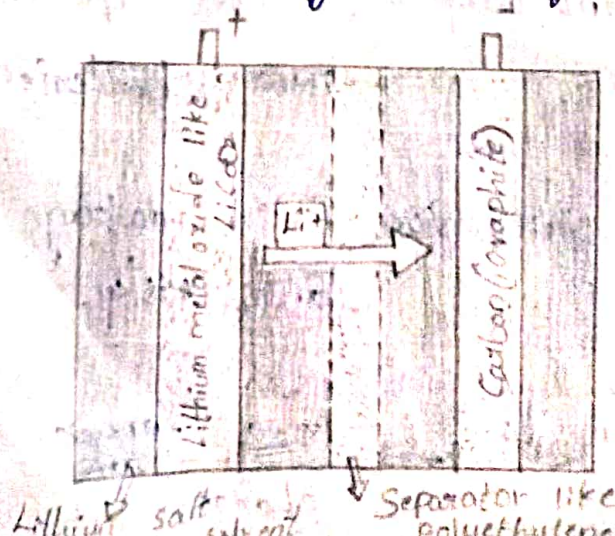 +
Lithium metal oxide like
LiCoO2
Li+
Carbon (Graphite)
Lithium salt
solvent
Separator like
polyethylene